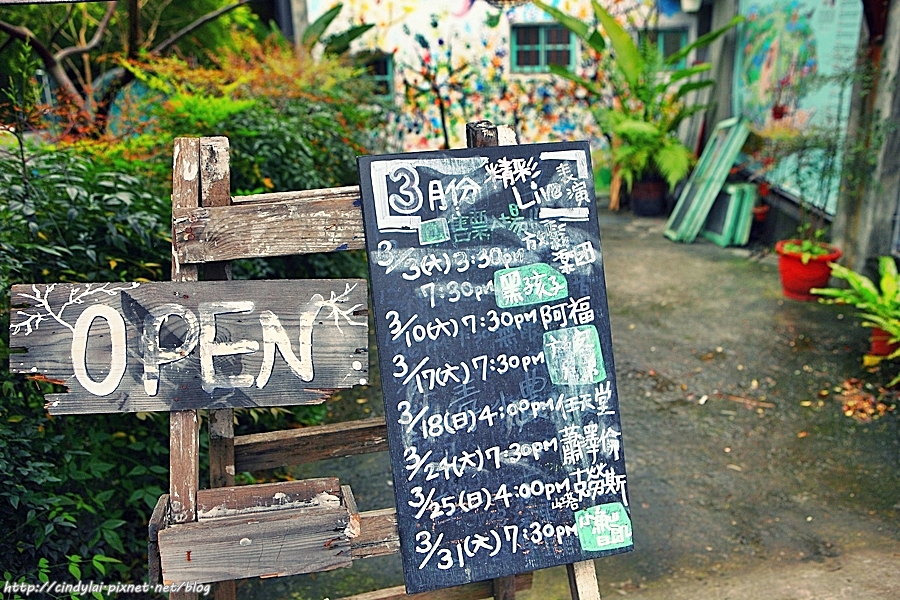 OPEN
3月份 精彩 Live 表演
3/3(六) 3:30pm 樂團
7:30pm 黑孩子
3/10(六) 7:30pm 阿福
3/17(六) 7:30pm
3/18(日) 4:00pm 任天堂
3/24(六) 7:30pm 蕭澤倫
3/25(日) 4:00pm 克勞斯
3/31(六) 7:30pm
http://cindylai-pixnet.net/blog